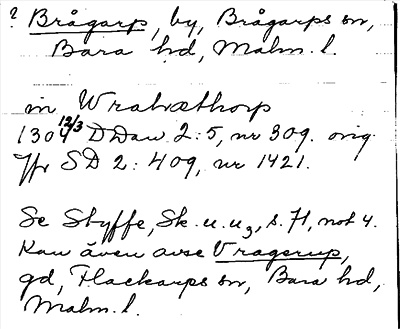 ? Brågarp, by, Brågarps sn,
Bara hd, Malm. l.
in Wrakæthorp
1304 12/3 DDan 2:5, nr 309. orig.
Jfr SD 2: 409, nr 1421.
Se Styffe, Sk. u. u3, s. 71, not 4.
Kan även avse Vragerup,
gd, Flackarps sn, Bara hd,
Malm. l.